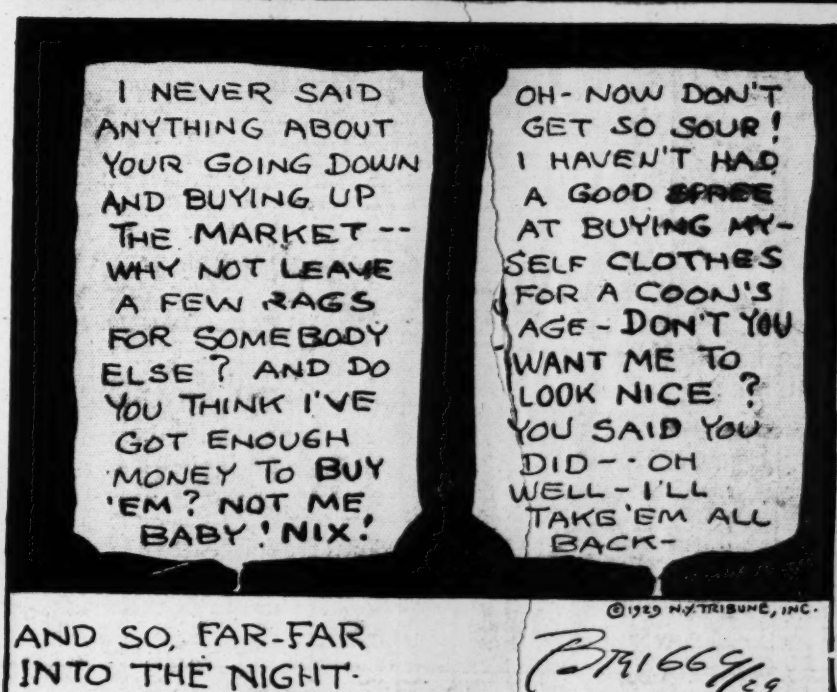 I NEVER SAID
ANYTHING ABOUT
YOUR GOING DOWN
AND BUYING UP
THE MARKET --
WHY NOT LEAVE
A FEW RAGS
FOR SOMEBODY
ELSE? AND DO
YOU THINK I'VE
GOT ENOUGH
MONEY TO BUY
'EM? NOT ME
BABY! NIX!
OH- NOW DON'T
GET SO SOUR!
I HAVEN'T HAD
A GOOD SPREE
AT BUYING MY-
SELF CLOTHES
FOR A COON'S
AGE - DON'T YOU
WANT ME TO
LOOK NICE?
YOU SAID YOU
DID -- OH
WELL - I'LL
TAKE 'EM ALL
BACK -
© 1929 N.Y. TRIBUNE, INC.
AND SO, FAR-FAR
INTO THE NIGHT.
BRIGGS/29